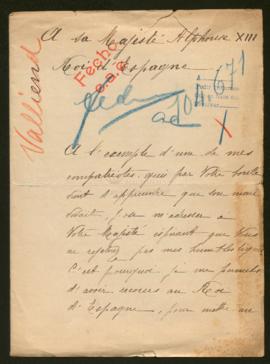 A sa Majesté Alphonse XIII
Roi d'Espagne
Valliend
Fecho
A l'exemple d'une de mes
compatriotes, qui par Votre bonté
vient d'apprendre que son mari
vivait, j'ose m'adresser à
Votre Majesté espérant que Vous
ne rejeterez pas mes humbles lignes
C'est pourquoi je me permets
d'avoir recours au Roi
d'Espagne, pour mettre un